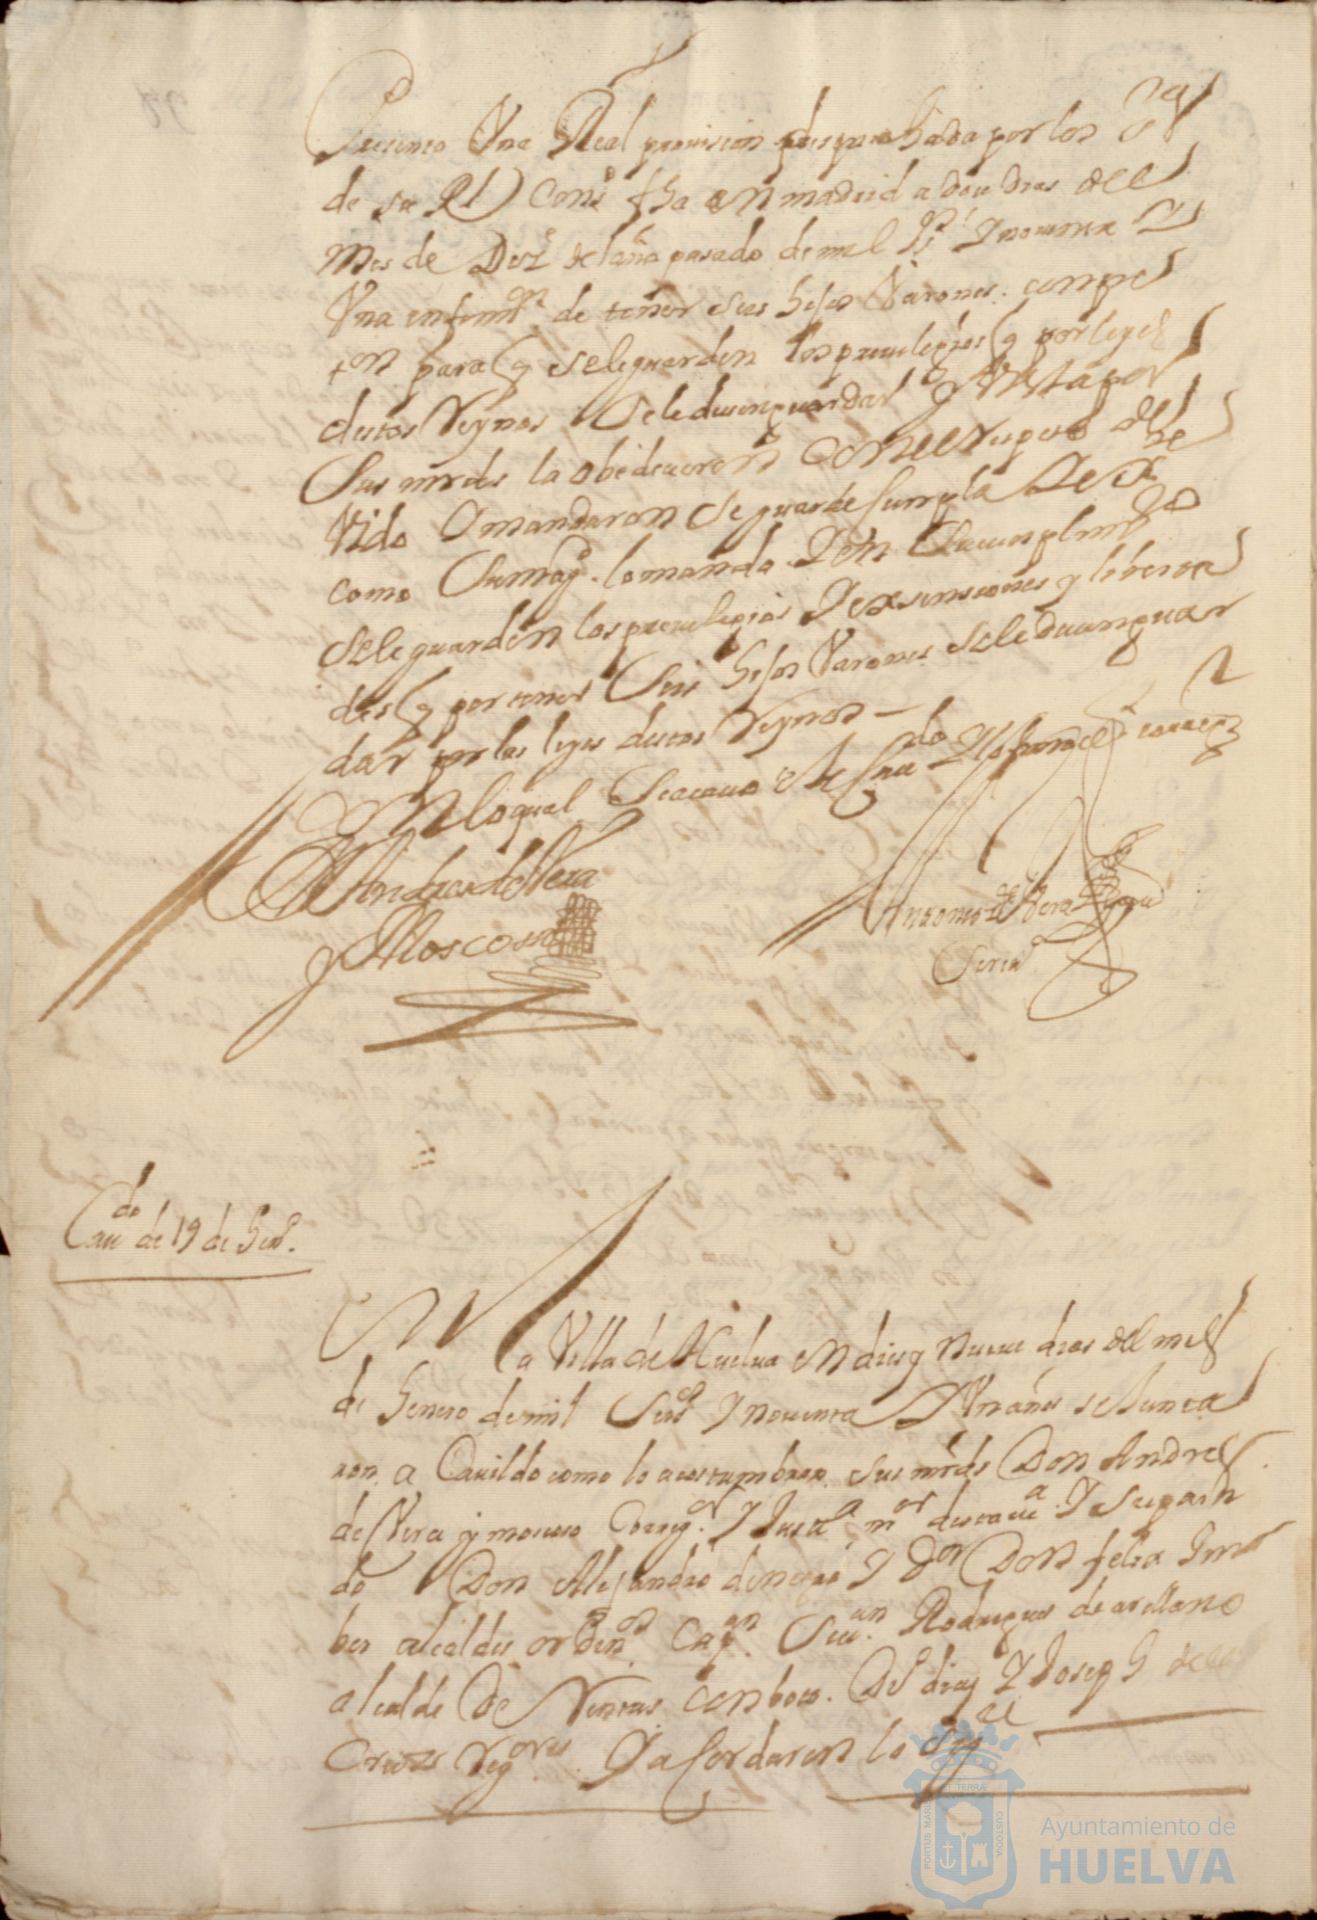 Presento Vna Real prouision despachada por los SS
de su Rl Consº fha en madrid a doze dias del
mes de Dize del año pasado de mil Ss Y nouenta Y
Vna informon de tener seis hijos Varones. con pe
ton para q se le guarden los preuilegios q por leyes
destos Reynos se le deuen guardar y Vista por
Sus mrds la obedecieron con el respeto deue
Vido Y mandaron se guarde Cumpla
como Su Magd. lo manda Y en Su cumplimto
se le guarden los preuilegios Y exsensiones y liberta
des q por tener Seis hijos Varones se le deuen guar
dar por las leyes destos Reynos —
En lo qual Se acauo este Caudo Y lo firmaron
Andres de Vera
y Moscoso
Antonio de Vera
Seria
Caudo de 19 de Henº.
En la Villa de Huelua en dies y nueue dias del mes
de Henero de mil Seisos Y nouenta Y Vn años se Junta
ron a Cauildo como lo acostumbran sus mrds Don Andres
de Vera y moscoso Correxor. Y Justa mor desta va Y Su parti
do Don Alejandro de negro Y Dor Don felix Ime
ber alcaldes ordinos Capan. Seuan. Rodrigues de arellano
alcalde De Rentas con boto. Do dias Y Josep G de la
Cruz Regores. Y acordaron lo sige
PORTUS MARIS ET TERRÆ CUSTODIA
Ayuntamiento de
HUELVA